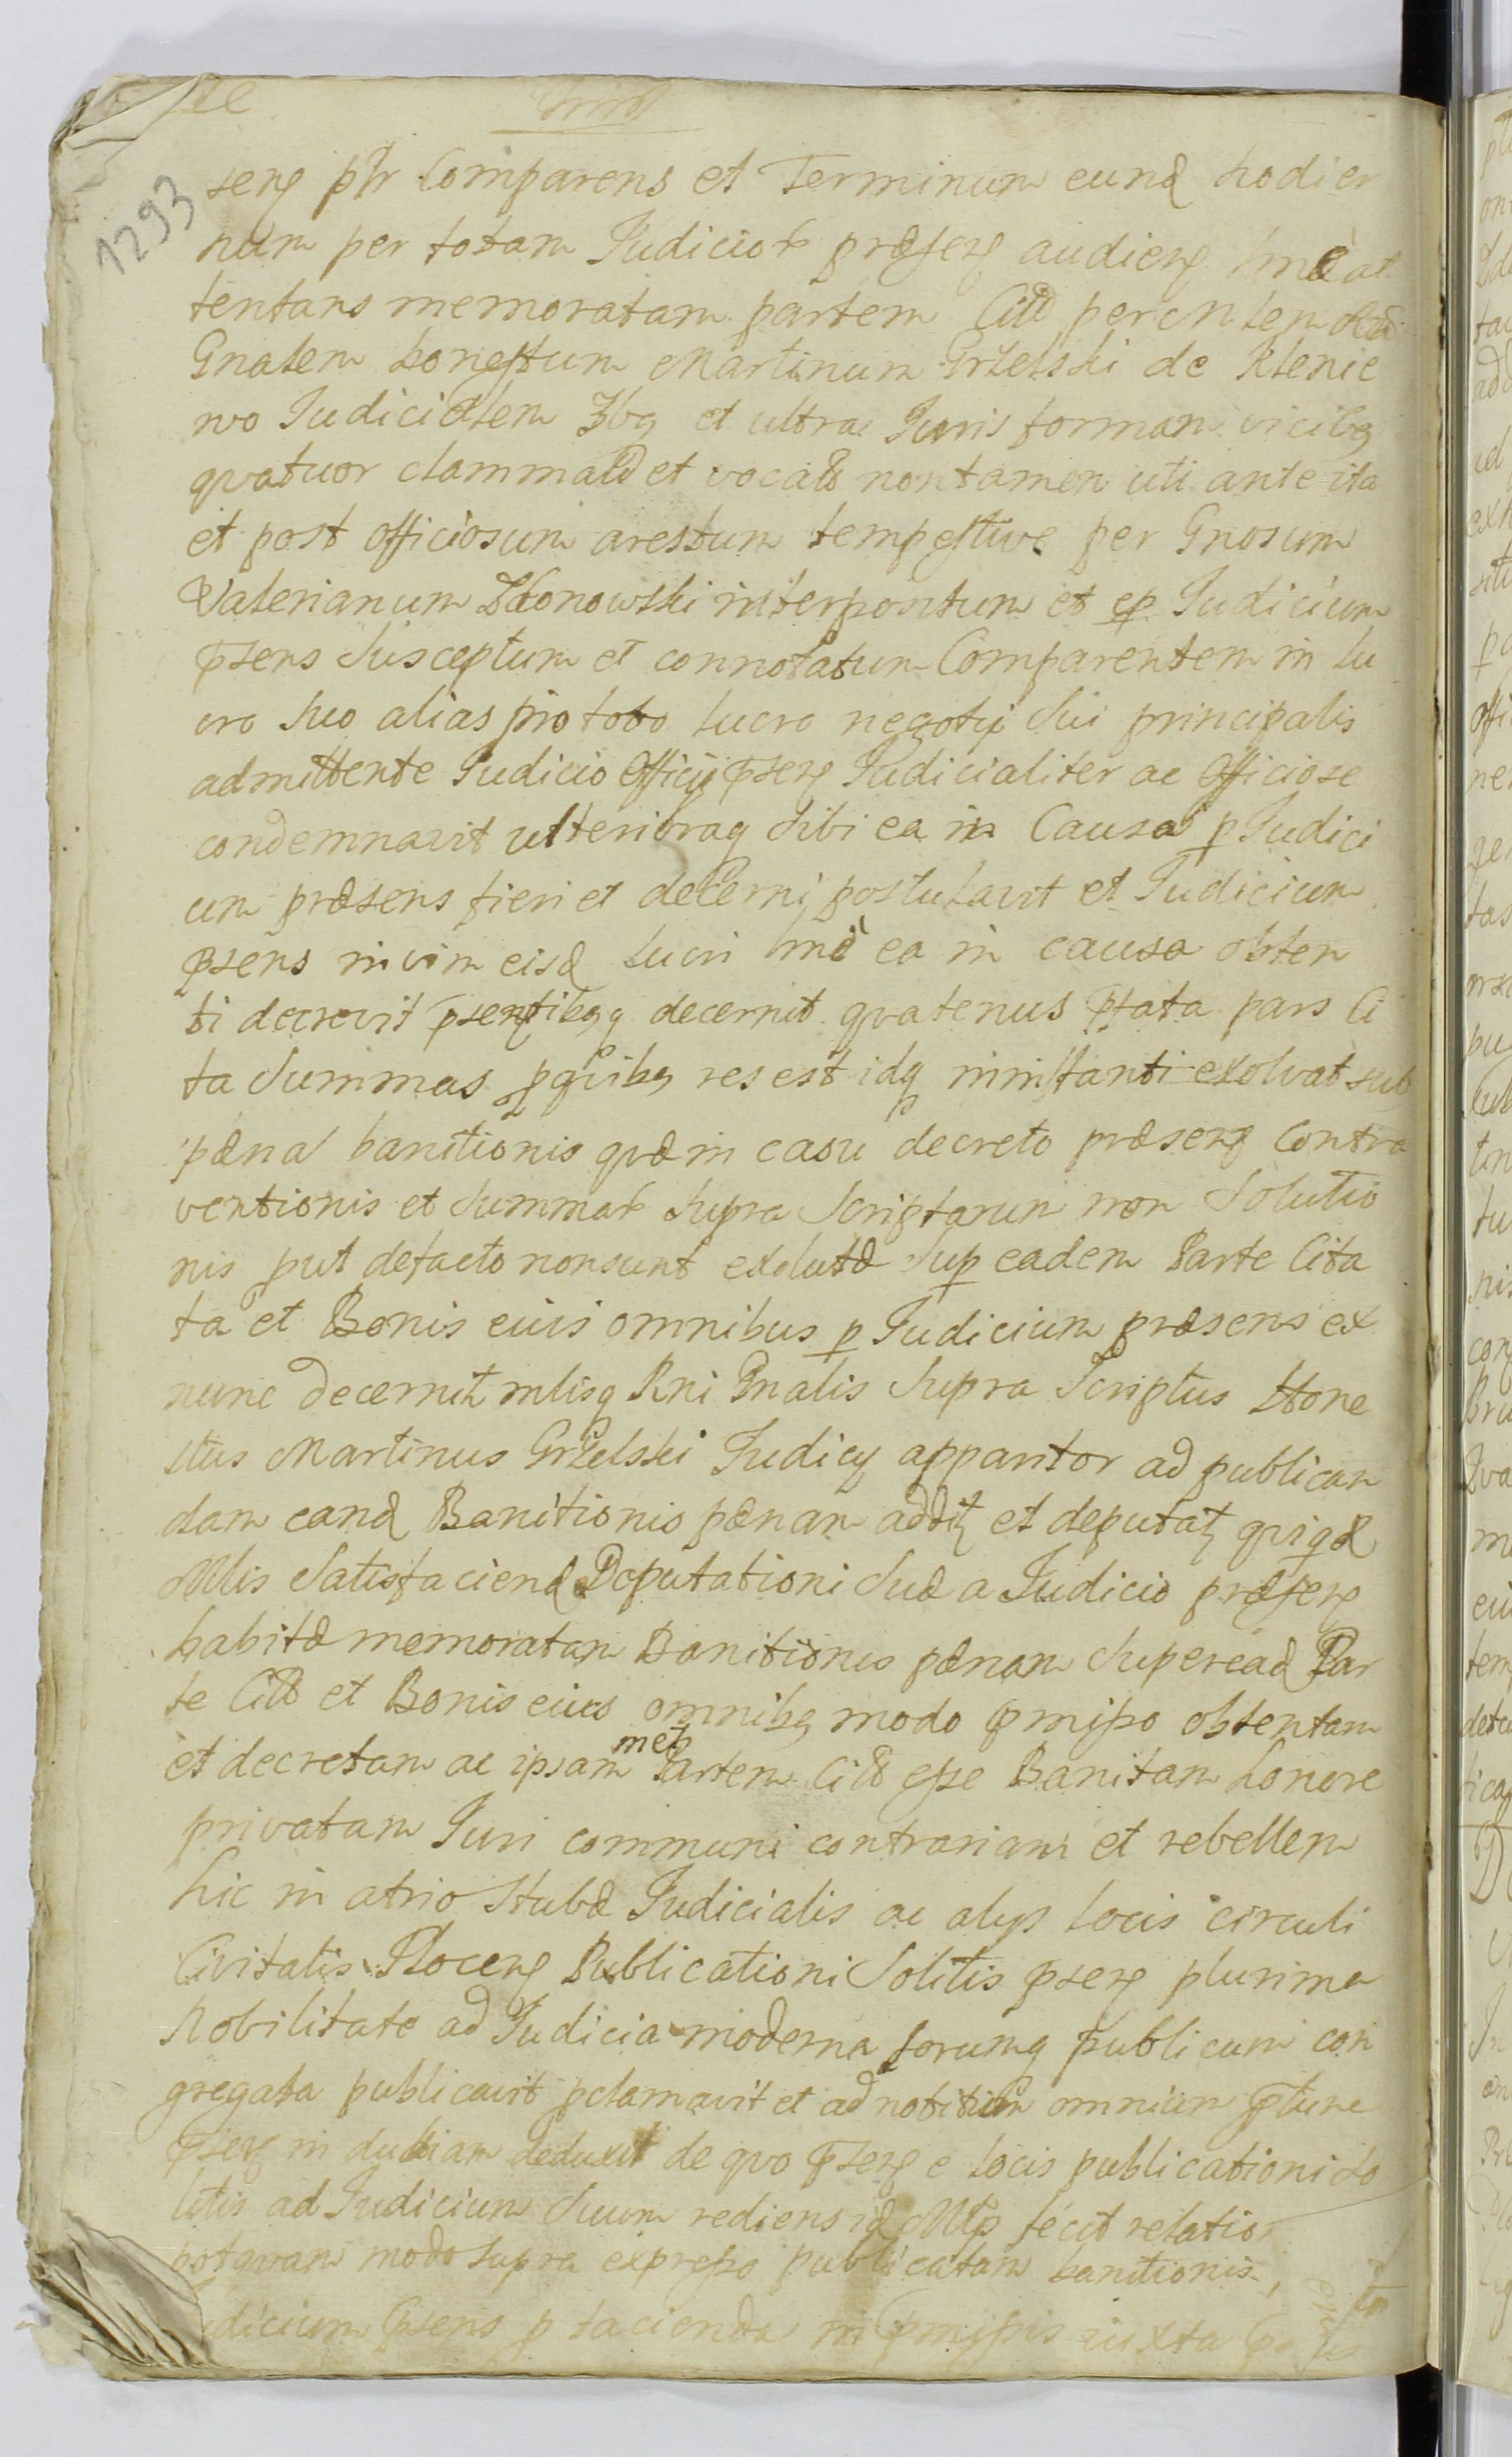 1293
sens ptr Comparens et Terminum eund hodier
num per totam Judicior praesens audiens
tentans memoratam partem Citt per
Gnalem honestum Martinum Grzelski de Klenie
wo Judicialem 3bq et ultra Juris formam vicibq
qvatuor clammatt et vocatt non tamen uti ante ita
et post officiosum arestum tempestive per Gnosum
Valerianum Zdonowski interpositum et p Judicium
psens susceptum et connotatum Comparentem in lu
cro suo alias pro toto lucro negotij sui principalis
admittente Judicio Officij psens Judicialiter ac Officiose
condemnavit ulterioraq sibi ea in Causa p Judici
um praesens fieri et decerni postulavit et Judicium
psens in vim eisd lucri ea in causa obten
ti decrevit psentibqq decernit qvatenus pfata pars Ci
ta summas p qvibq res est idq ninstanti exolvat sub
paena banitionis qvae in casu decreto praesens Contra
ventionis et summar supra scriptarum non Solutio
nis put defacto non sunt exolutae Sup eadem Parte Cita
ta et Bonis eius omnibus p Judicium praesens ex
nunc decernit mlisq Rni Gnalis supra Scriptus Hone
stus Martinus Grzelski Judicij apparitor ad publican
dam eand Banitionis paenam addit et deputat qviqd
Mlis satisfaciend Deputationi suae a Judicio praesens
habitae memoratam Banitionis paenam super ead Par
te Citt et Bonis eius omnibq modo pmisso obtentam
et decretam ac ipsam met Partem Citt esse Banitam honore
privatam Juri communi contrariam et rebellem
hic in atrio stubae Judicialis ac alys locis circuli
Civitatis Plocens Publicationi Solitis psens plurima
Nobilitate ad Judicia moderna forumq publicum con
gregata publicavit pclamavit et ad notitiam omnium
deduxit de qvo psens e locis publicationi so
litis ad Judicium suum rediens id fecit relation
modo supra expresso publicatam banitionis
dicium psens p facienda in pmissis iuxta